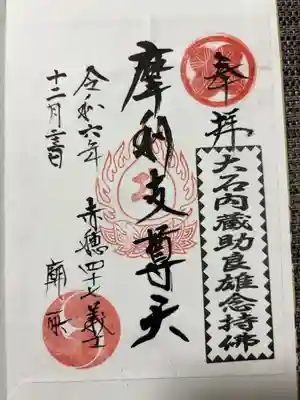 奉拝
大石内蔵助良雄念持佛
摩利支尊天
赤穂四十七義士
廟所
令和六年
十二月三日